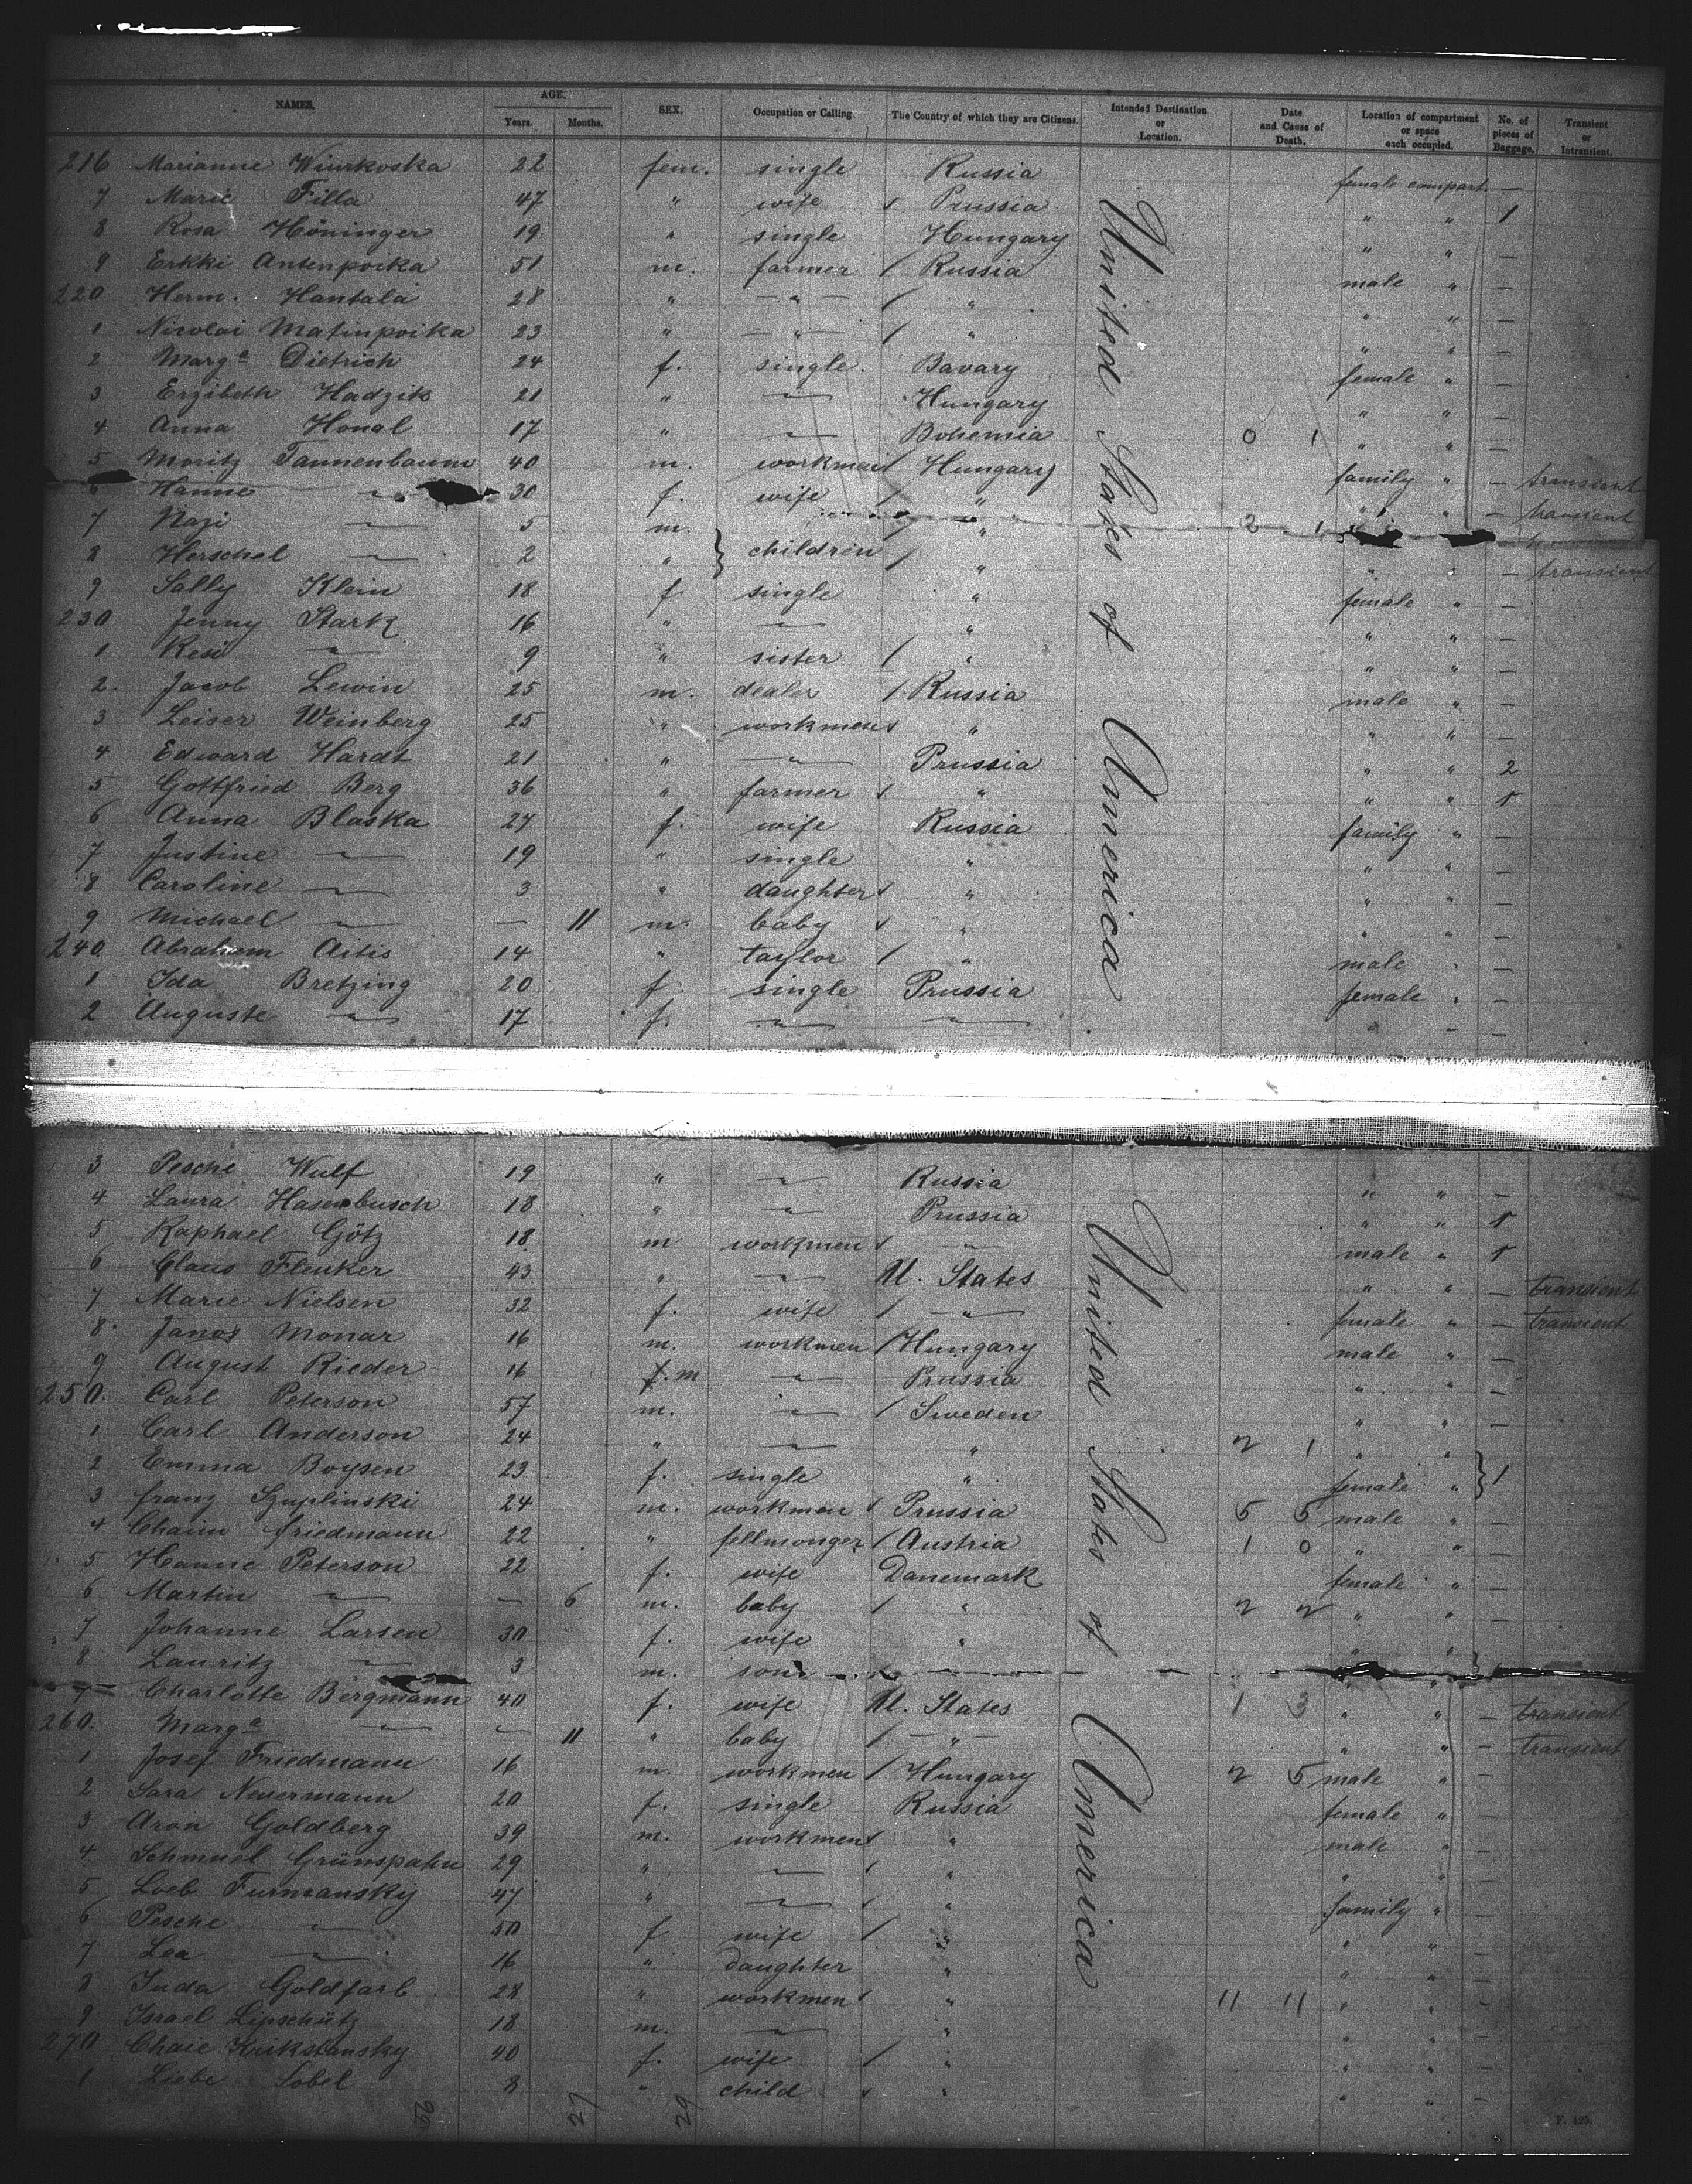 NAMES. AGE. Years. Months. SEX. Occupation or Calling. The Country of which they are Citizens. Intended Destination or Location. Date and Cause of Death. Location of compartment or space each occupied. No. of pieces of Baggage. Transient or Intransient.
United States of America
216 Marianne Wiurkoska 22 fem. single Russia female compart. —
7 Marie Filla 47 " wife Prussia " " 1
8 Rosa Höninger 19 " single Hungary " " —
9 Erkki Antinpoika 51 m. farmer / Russia male " —
220 Herm. Hantala 28 " — " — / " " " —
1 Nicolai Matinpoika 23 " — " — / " " " —
2 Marg.a Dietrich 24 f. single Bavary female " —
3 Erzibeth Hadzik 21 " — " — Hungary " " —
4 Anna Honal 17 " — " — Bohemia 0 1 " " —
5 Moritz Tannenbaum 40 m. workmen / Hungary family " — transient
6 Hanne — " — 30 f. wife / " " " — transient
7 Nazi — " — 5 m. " 2 1
8 Herschel — " — 2 " } children / " " " — transient
9 Sally Klein 18 f. single " female " —
230 Jenny Stark 16 " — " — " " " —
1 Resi — " — 9 " sister / " " " —
2 Jacob Lewin 25 m. dealer / Russia male " —
3 Leiser Weinberg 25 " workmen " " " —
4 Edward Hardt 21 " — " — Prussia " " 2
5 Gottfried Berg 36 " farmer " " " 1
6 Anna Blaska 27 f. wife Russia family " —
7 Justine — " — 19 " single " " " —
8 Caroline — " — 3 " daughter " " " —
9 Michael — " — — 11 m. baby " " " —
240 Abraham Aitis 14 " taylor / " male " —
1 Ida Bretzing 20 f. single Prussia female " —
2 Auguste — " — 17 f. — " — — " — " — —
United States of America
3 Pesche Wulf 19 " — " — Russia " " —
4 Laura Hasenbusch 18 " — " — Prussia " " 1
5 Raphael Götz 18 m workmen — " — male " 1
6 Claus Fleuker 43 " — " — U. States " " — transient
7 Marie Nielsen 32 f. wife / — " — female " — transient
8 Janos Monar 16 m. workmen / Hungary male " —
9 August Rieder 16 f. m — " — Prussia " " —
250. Carl Peterson 57 m. — " — / Sweden " " —
1 Carl Anderson 24 " — " — " 2 1 " "
2 Emma Boysen 23 f. single " female " } 1
3 Franz Szuplinski 24 m. workmen Prussia 5 5 male " —
4 Chaim Friedmann 22 " fellmonger / Austria 1 0 " " —
5 Hanne Peterson 22 f. wife Danemark female " —
6 Martin — " — — 6 m. baby / " 2 2 " " —
7 Johanne Larsen 30 f. wife " " "
8 Lauritz — " — 3 m. son
9 Charlotte Bergmann 40 f. wife U. States 1 3 " " — transient
260. Marg.a — " — — 11 " baby / — " — " " — transient
1 Josef Friedmann 16 m. workmen / Hungary 2 5 male " —
2 Sara Neuermann 20 f. single Russia female " —
3 Aron Goldberg 39 m. workmen " male " —
4 Schmuel Grünspahn 29 " — " — / " " " —
5 Loeb Furmansky 47 " — " — " family " —
6 Pesche — " — 50 f wife / " " " —
7 Lea — " — 16 " daughter " " " —
8 Juda Goldfarb 28 " workmen " 11 11 " " —
9 Israel Lipschütz 18 m. — " — " " " —
270 Chaie Krikstansky 40 f. wife / " " " —
1 Liebe Sobel 8 " child " " " —
F. 425.